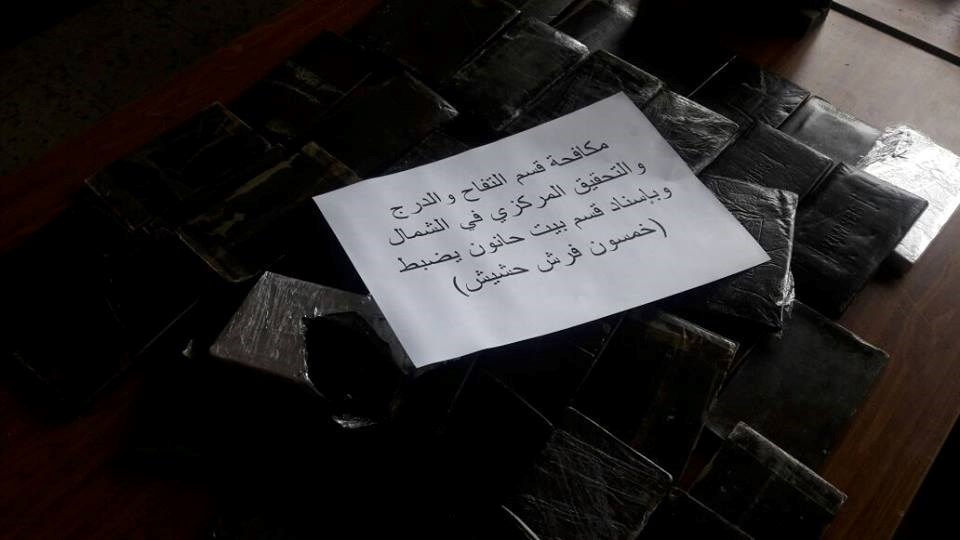 مكافحة قسم التفاح و الدرج
و التحقيق المركزي في الشمال
وبإسناد قسم بيت حانون يضبط
(خمسون فرش حشيش)